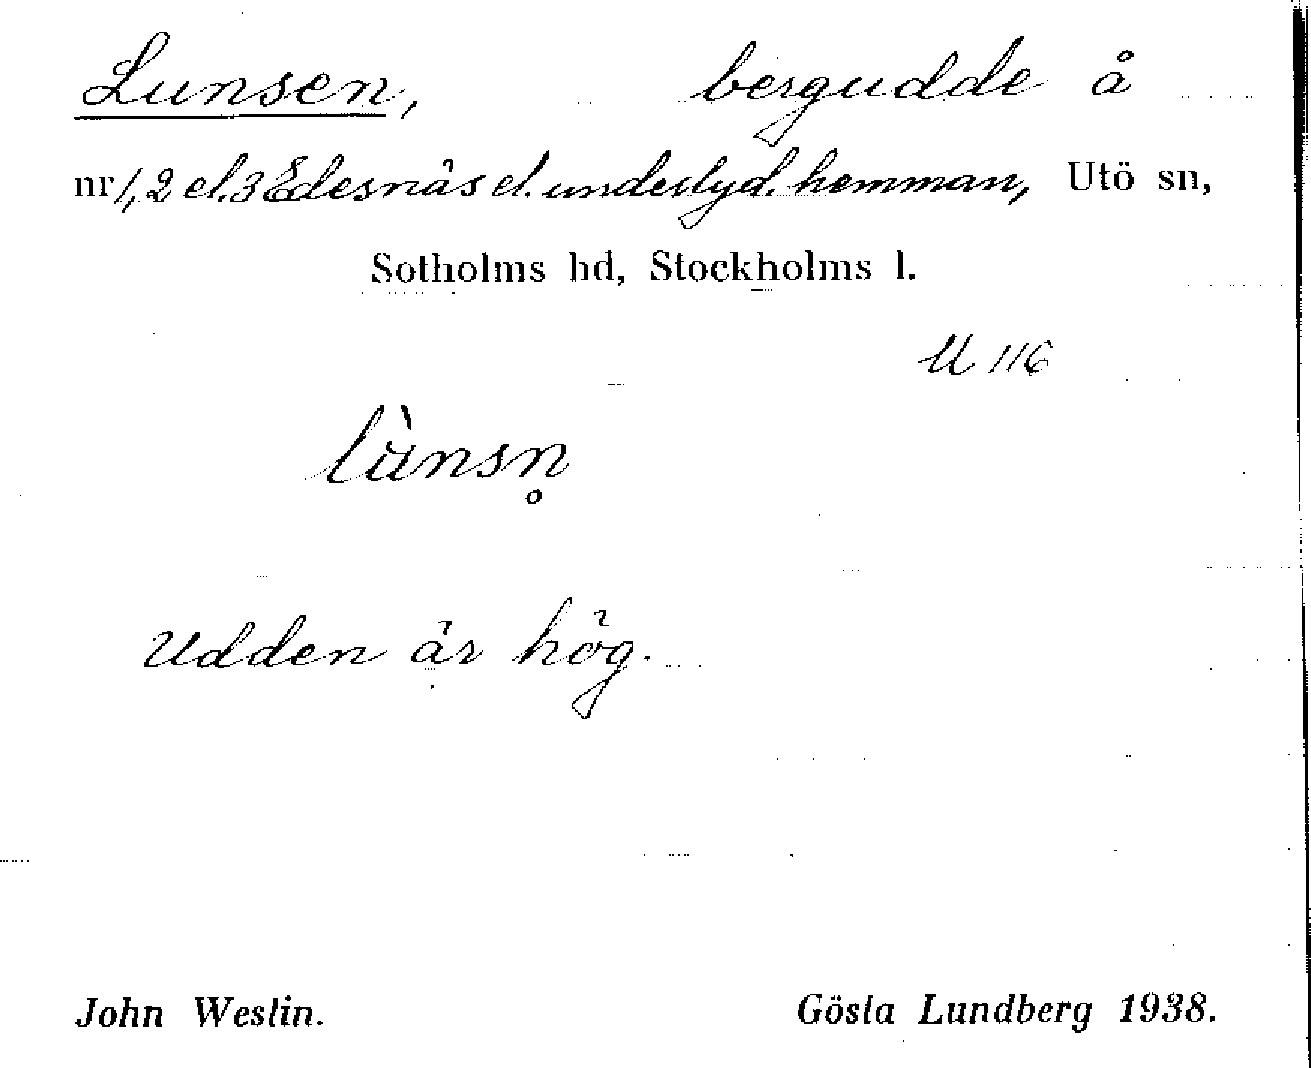 Lunsen, bergudde å
nr 1, 2 el. 3 Edesnäs el. underlyd. hemman, Utö sn,
Sotholms hd, Stockholms l.
U 116
lùnsn̥
Udden är hög.
John Westin. Gösta Lundberg 1938.